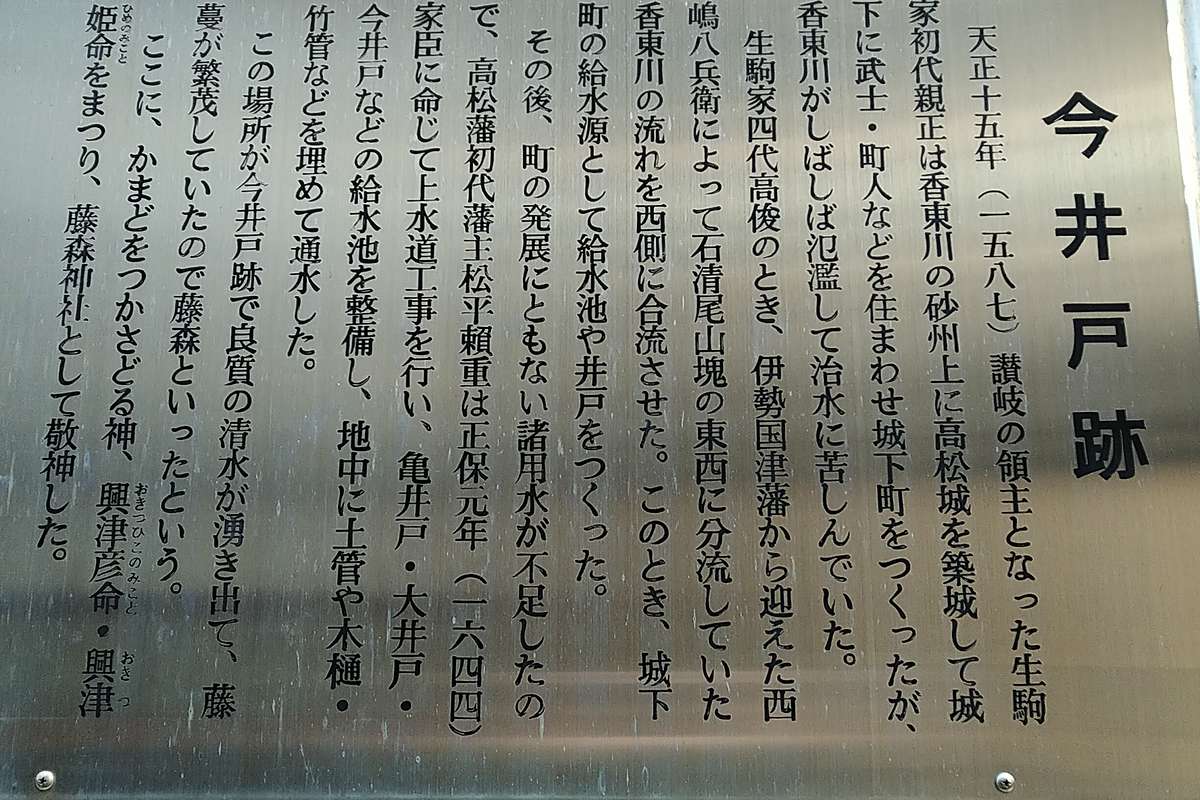 今井戸跡
天正十五年（一五八七）讃岐の領主となった生駒
家初代親正は香東川の砂州上に高松城を築城して城
下に武士・町人などを住まわせ城下町をつくったが、
香東川がしばしば氾濫して治水に苦しんでいた。
生駒家四代高俊のとき、伊勢国津藩から迎えた西
嶋八兵衛によって石清尾山塊の東西に分流していた
香東川の流れを西側に合流させた。このとき、城下
町の給水源として給水池や井戸をつくった。
その後、町の発展にともない諸用水が不足したの
で、高松藩初代藩主松平頼重は正保元年（一六四四）
家臣に命じて上水道工事を行い、亀井戸・大井戸・
今井戸などの給水池を整備し、地中に土管や木樋・
竹管などを埋めて通水した。
この場所が今井戸跡で良質の清水が湧き出て、藤
蔓が繁茂していたので藤森といったという。
ここに、かまどをつかさどる神、興津彦命・興津
おきつひこのみこと　おきつ
姫命をまつり、藤森神社として敬神した。
ひめのみこと